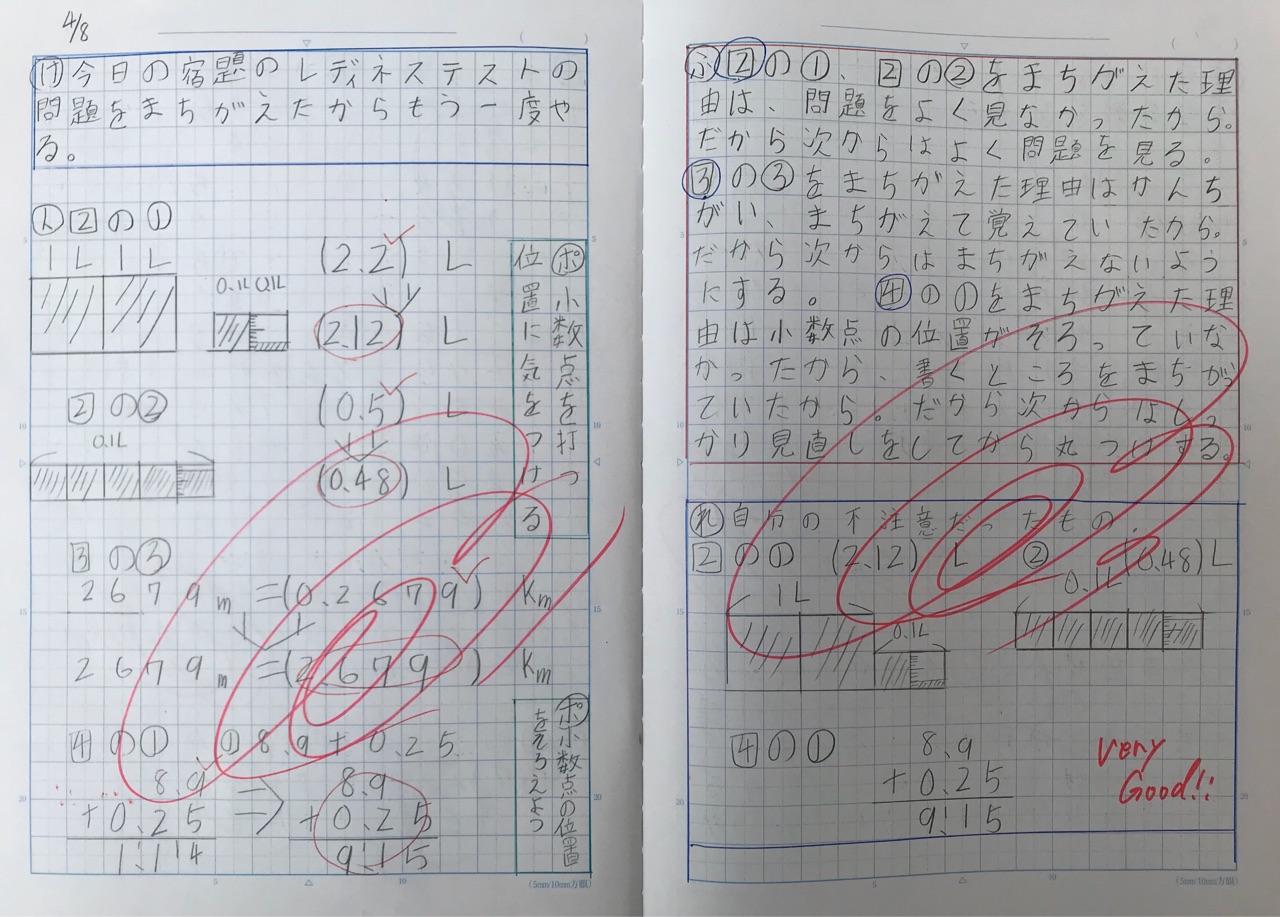 4/8
け今日の宿題のレディネステストの
問題をまちがえたからもう一度や
る。
2の①
1L 1L
0.1L 0.1L
(2.2) L
(2.12) L
ポ小数点を打つ
位置に気をつける
2の②
0.1L
(0.5) L
(0.48) L
3の③
2679m=(0.2679) Km
2679m=(2.679) Km
4の① ①8.9+0.25
8.9
+0.25
1.14
8.9
+0.25
9.15
ポ小数点の位置
をそろえよう
ふ2の①、2の②をまちがえた理
由は、問題をよく見なかったから。
だから次からはよく問題を見る。
3の③をまちがえた理由はかんち
がい、まちがえて覚えていたから。
だから次からはまちがえないよう
にする。 4の①をまちがえた理
由は小数点の位置がそろっていな
かったから、書くところをまちがっ
ていたから。だから次からはしっ
かり見直しをしてから丸つけする。
れ自分の不注意だったもの.
2の① (2.12)L ② (0.48)L
1L
0.1L
0.1L
4の①
8.9
+0.25
9.15
very
Good!!
(5mm/10mm方眼)
(5mm/10mm方眼)